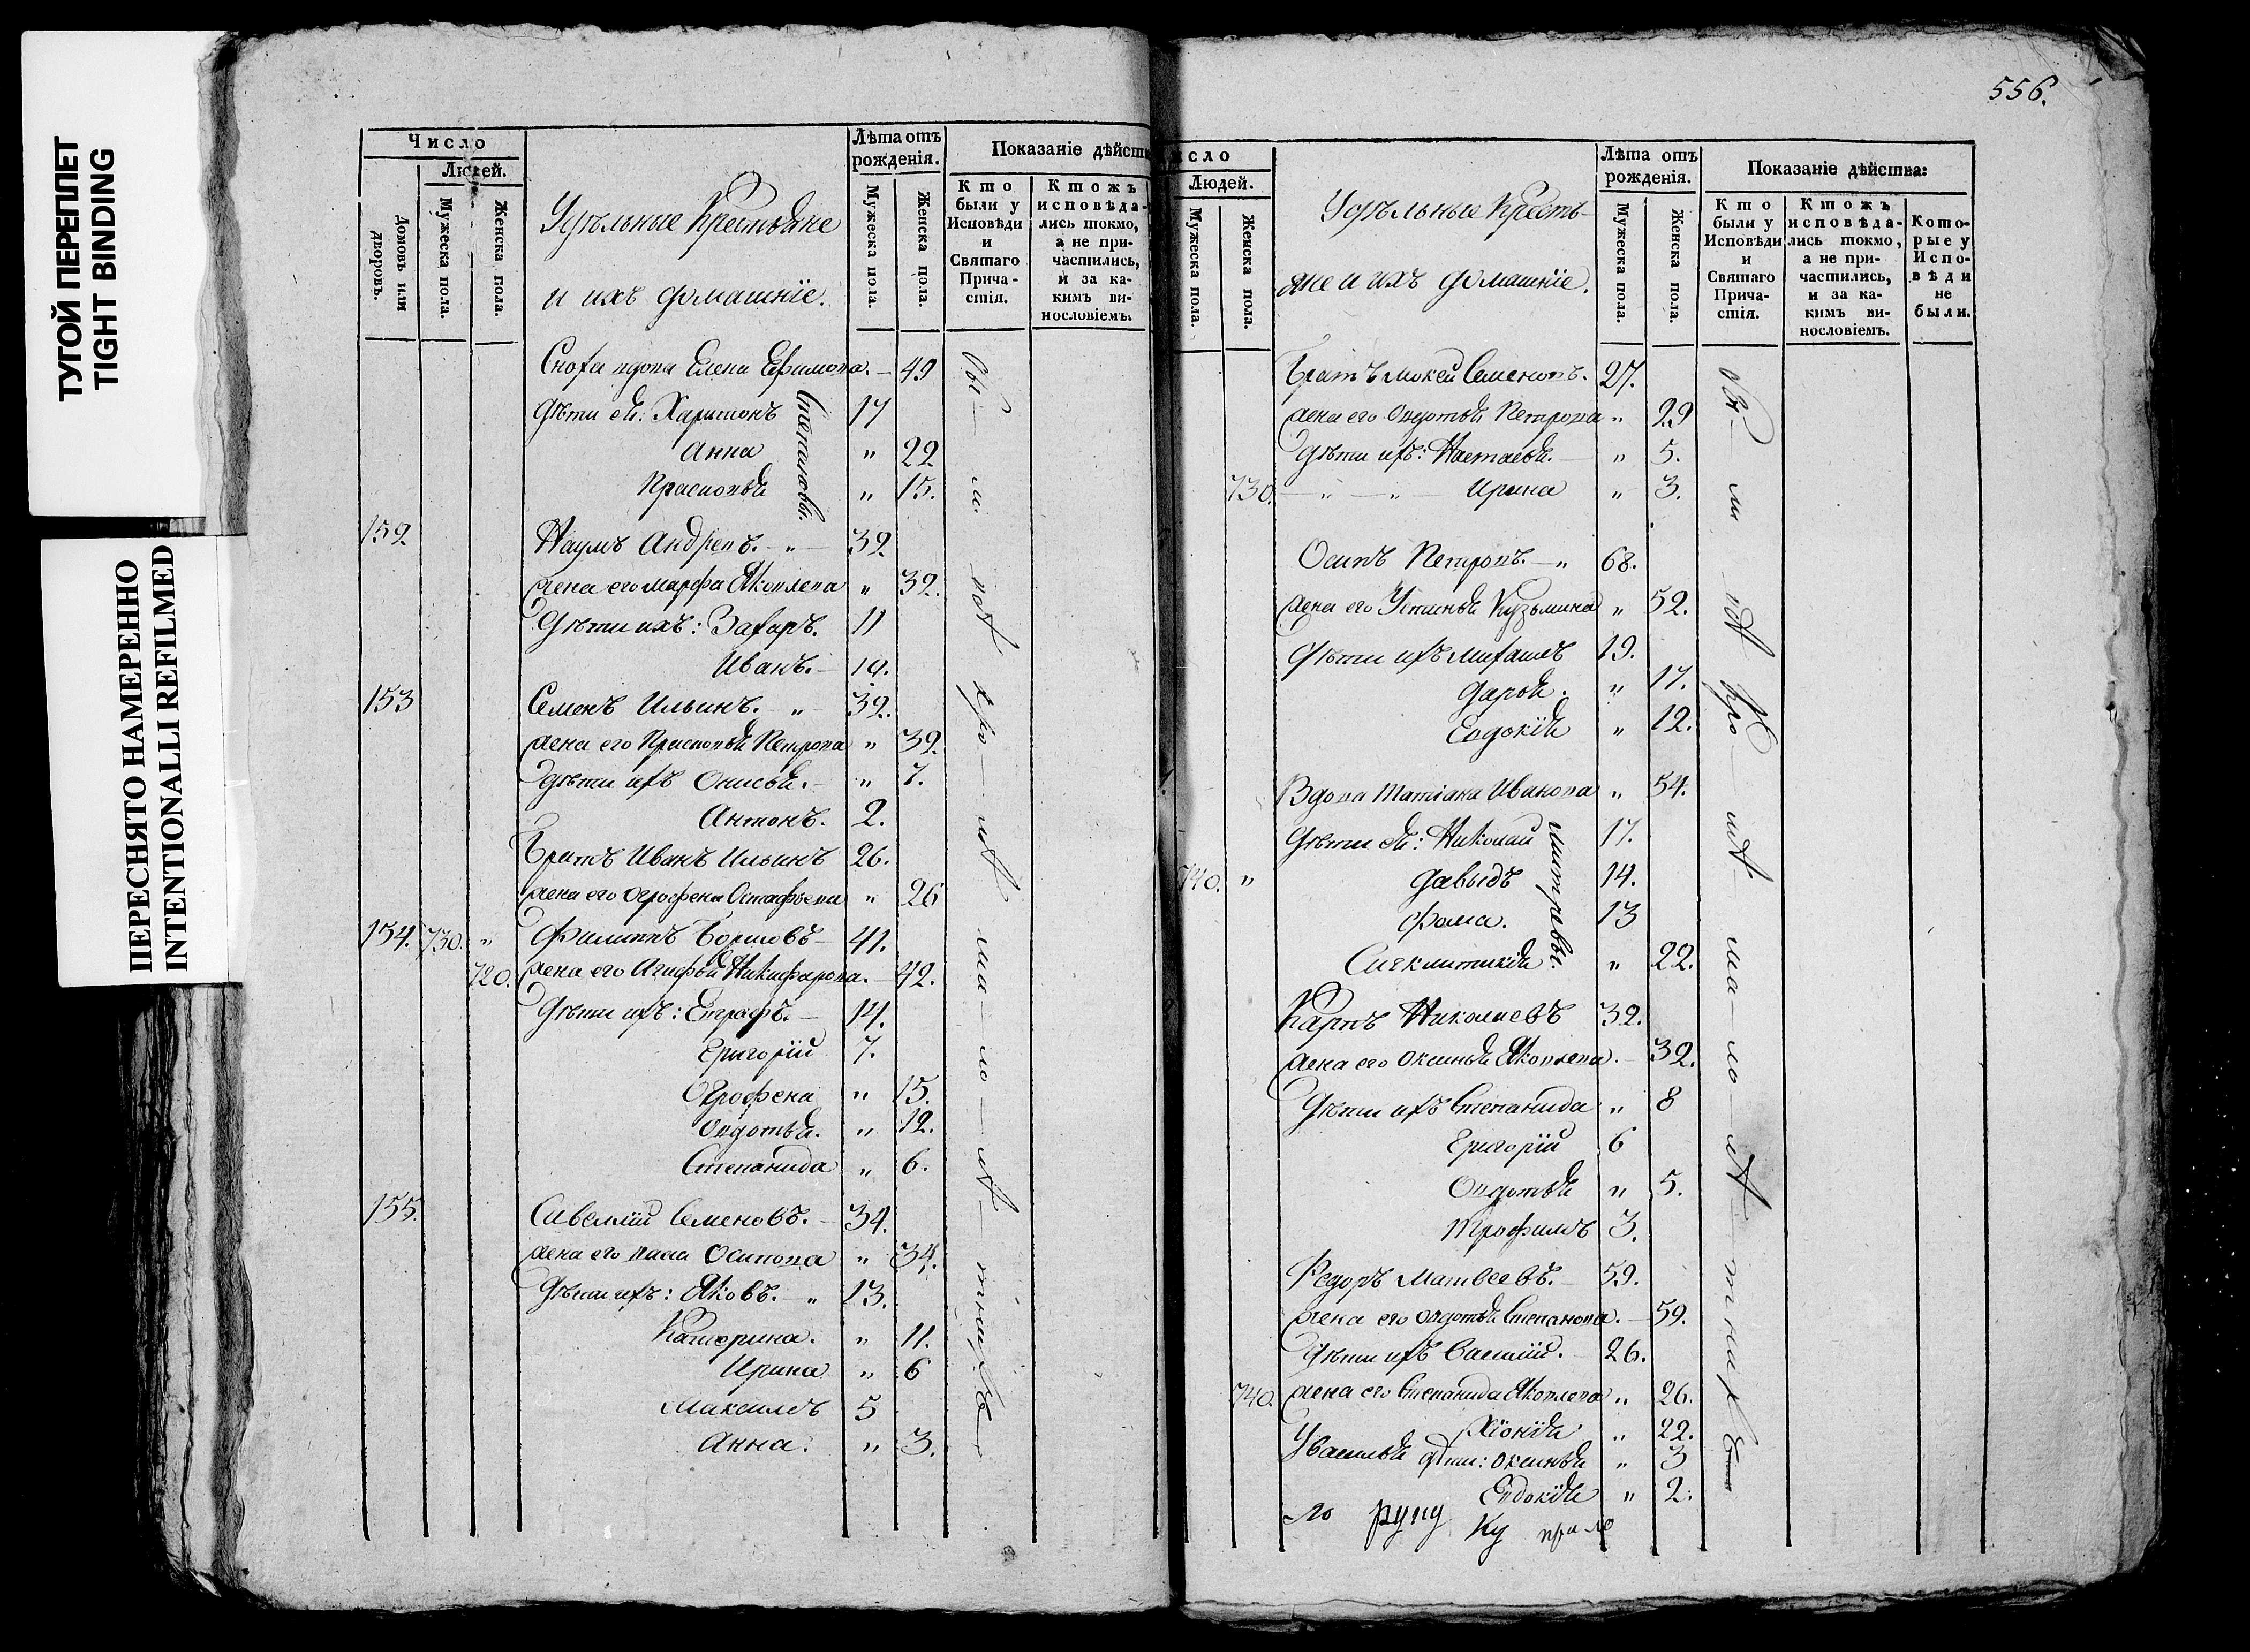 ТУГОЙ ПЕРЕПЛЕТ
TIGHT BINDING
ПЕРЕСНЯТО НАМЕРЕННО
INTENTIONALLI REFILMED
Число
Людей.
Домовъ или дворовъ.
Мужеска пола.
Женска пола.
Удѣльные Крестьяне
и ихъ домашнїе.
Лѣта отъ рожденія.
Мужеска пола.
Женска пола.
Показаніе дѣйств
Кто были у Исповѣди и Святаго Причастія.
Ктожъ исповѣдались токмо, а не причастились, и за какимъ винословіемъ.
Сноха вдова Елена Ефимова. 49
Дѣти ея: Харитонъ 17
Степановы.
Анна " 22
Прасковья " 15.
152 Наумъ Андреевъ. " 32
жена его Марфа Яковлева " 32.
Дѣти ихъ: Захаръ. 11
Иванъ. 14.
153 Семенъ Ильинъ. " 32.
жена его Прасковья Петрова " 32.
дѣти ихъ Онисья. " 7.
Антонъ. 2.
Братъ Иванъ Ильинъ 26.
жена его Огрофена Остафьева " 26
154. 730. " Филиппъ Борисовъ 41.
720. жена его Агафья Никифарова. 42.
Дѣти ихъ: Евграфъ. 14.
Григорїй 7.
Огрофена " 15.
Овдотья. " 12.
Степанида " 6.
155. Савелїй Семеновъ. 34.
жена его Осипова " 34.
Дѣти ихъ: Яковъ. " 13.
Катерина. " 11.
Ирина " 6
Максимъ 5
Анна. " 3.
556.
исло
Людей.
Мужеска пола.
Женска пола.
Удѣльные Кресть-
яне и ихъ домашнїе.
Лѣта отъ рожденія.
Мужеска пола.
Женска пола.
Показаніе дѣйства:
Кто были у Исповѣди и Святаго Причастія.
Ктожъ исповѣдались токмо, а не причастились, и за какимъ винословіемъ.
Которые у Исповѣди не были.
Братъ Мокей Семеновъ. 27.
жена его Овдотья Петрова " 29
Дѣти ихъ: Настасья. " 5.
730. " " Ирина " 3.
Осипъ Петровъ. " 68.
жена его Устинья Кузьмина " 52.
Дѣти ихъ 19.
Дарья. " 17.
Евдокїя " 12.
Вдова Татїана Иванова " 54.
Дѣти ея: Николай 17.
740. " Давыдъ 14.
Фома. 13
" 22.
Карпъ Николаевъ 32.
жена его Оксинья Яковлева. 32.
Дѣти ихъ Степанида " 8
Григорїй 6
Овдотья " 5.
Трофимъ 3.
Федоръ Матвеевъ. 59.
жена его Овдотья Степанова. 59.
Дѣти ихъ Василїй. 26.
740. жена его Степанида Яковлева " 26.
Хїонїя " 22.
У Василья дѣти: Оксинья " 3
Евдокїя " 2.
ло руку